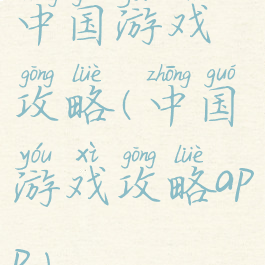 中国游戏
gōng lüè zhōng guó
攻略(中国
yóu xì gōng lüè
游戏攻略ap
p)